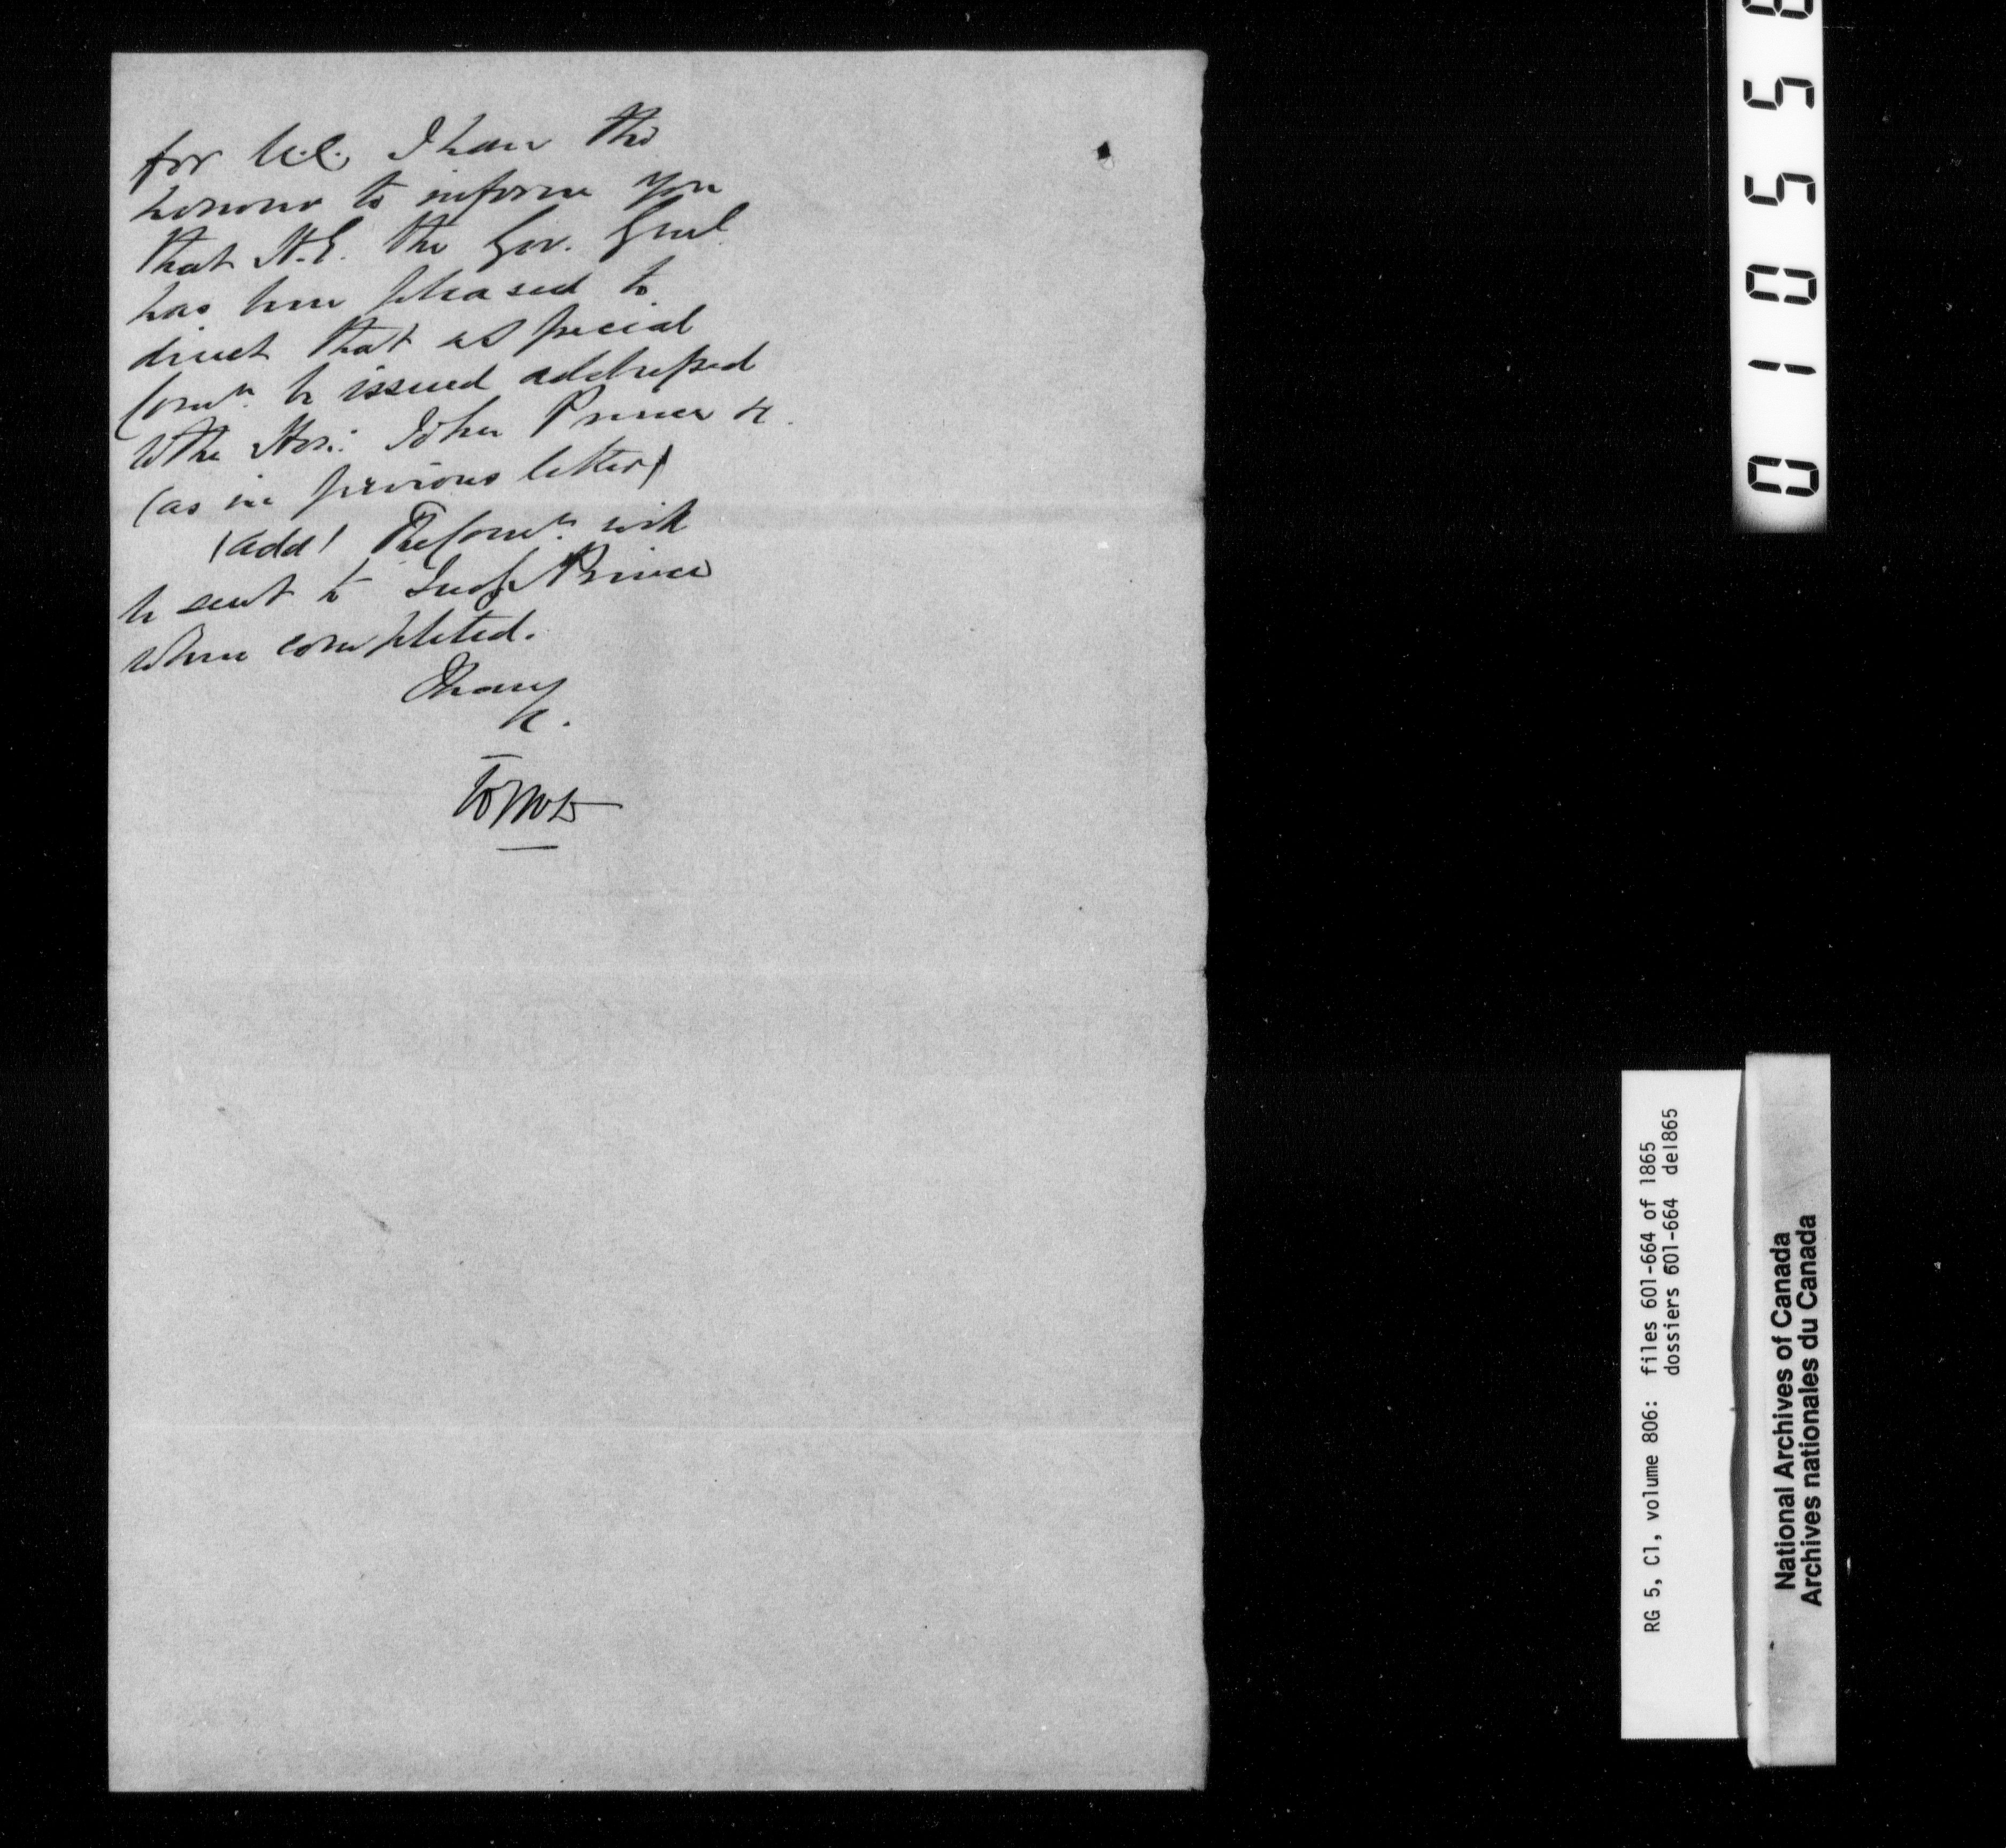 for U.C. I have the
honour to inform you
that H.E. the Gov. Genl
has been pleased to
direct that a Special
Comn. be issued addressed
to the Hon: John Prince &c.
(as in previous letter)
(add) The Comn. will
be sent to Judge Prince
when completed.
I have
&c.
RG 5, C1, volume 806: files 601-664 of 1865
dossiers 601-664 de1865
National Archives of Canada
Archives nationales du Canada
0 1 0 5 5 8